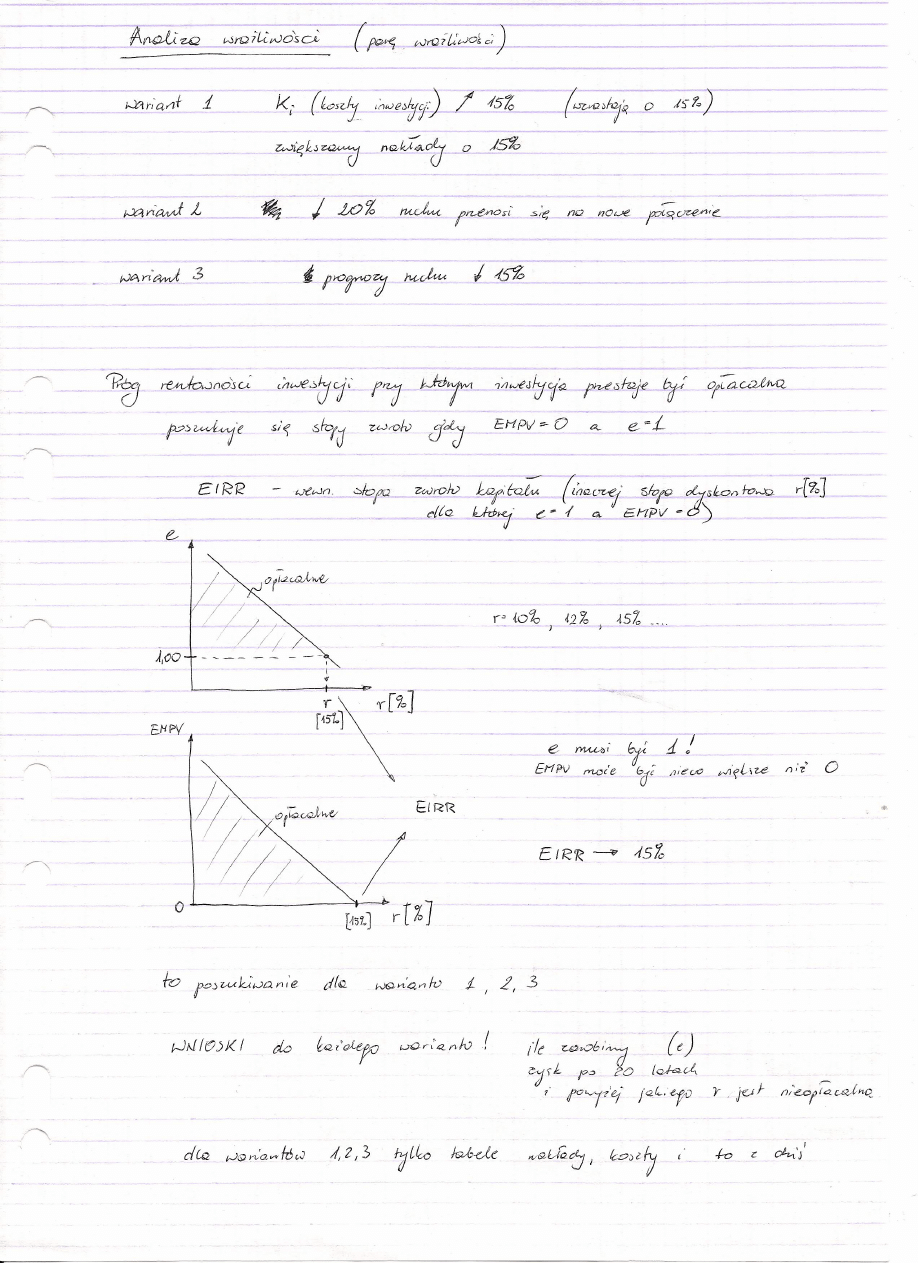 Analiza wrażliwości (parę wrażliwości)
wariant 1 Ki (koszty inwestycji) ↗ 15% (wzrastają o 15%)
zwiększamy nakłady o 15%
wariant 2 ↓ 20% ruchu przenosi się na nowe połączenie
wariant 3 prognozy ruchu ↓ 15%
Próg rentowności inwestycji przy którym inwestycja przestaje być opłacalna
poszukuje się stopy zwrotu gdy EMPV=0 a e=1
EIRR - wewn. stopa zwrotu kapitału (inaczej stopa dyskontowa r[%]
dla której e=1 a EMPV=0)
e
opłacalne
r=10%, 12%, 15% ....
1,00
r r[%]
[15%]
EMPV
e musi być 1!
EMPV może być nieco większe niż 0
EIRR
opłacalne
EIRR → 15%
0
[15%] r[%]
to poszukiwanie dla wariantu 1, 2, 3
WNIOSKI do każdego wariantu! ile zarobimy (e)
zysk po 20 latach
i powyżej jakiego r jest nieopłacalna
dla wariantów 1,2,3 tylko tabele nakłady, koszty i to z dziś